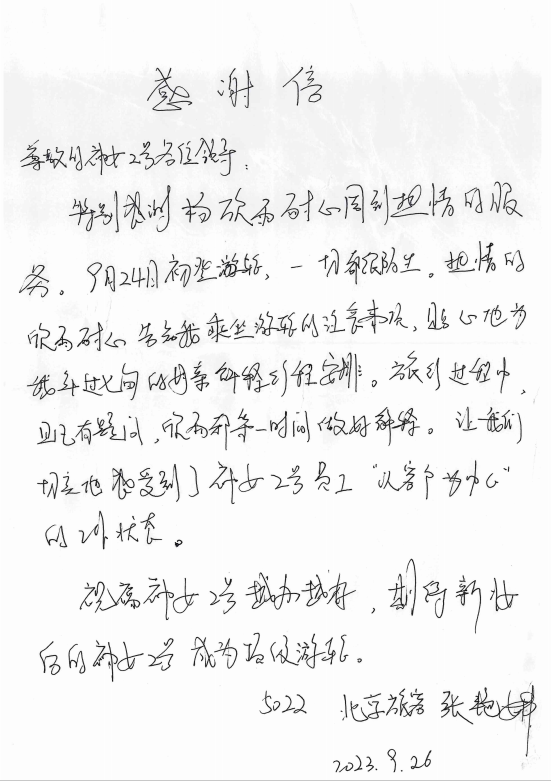 感谢信
尊敬的神女2号各位领导：
特别感谢杨欣雨耐心周到热情的服
务。9月24日初登游轮，一切都很陌生。热情的
欣雨耐心告知我乘坐游轮的注意事项，贴心地为
我年过七旬的母亲解释行程安排。旅行过程中，
但凡有疑问，欣雨都第一时间做好解释。让我们
切实地感受到了神女2号员工“以客户为中心”
的工作状态。
祝福神女2号越办越好，期待新妆
后的神女2号成为顶级游轮。
5022 北京旅客 张艳
2023.9.26